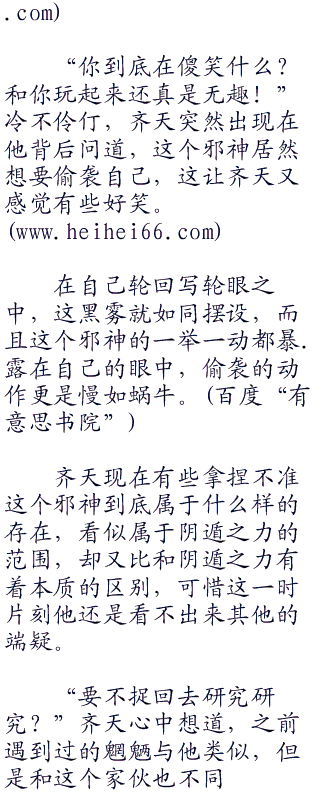 .com)
“你到底在傻笑什么？
和你玩起来还真是无趣！”
冷不伶仃，齐天突然出现在
他背后问道，这个邪神居然
想要偷袭自己，这让齐天又
感觉有些好笑。
(www.heihei66.com)
在自己轮回写轮眼之
中，这黑雾就如同摆设，而
且这个邪神的一举一动都暴.
露在自己的眼中，偷袭的动
作更是慢如蜗牛。(百度“有
意思书院”)
齐天现在有些拿捏不准
这个邪神到底属于什么样的
存在，看似属于阴遁之力的
范围，却又比和阴遁之力有
着本质的区别，可惜这一时
片刻他还是看不出来其他的
端疑。
“要不捉回去研究研
究？”齐天心中想道，之前
遇到过的魍魉与他类似，但
是和这个家伙也不同